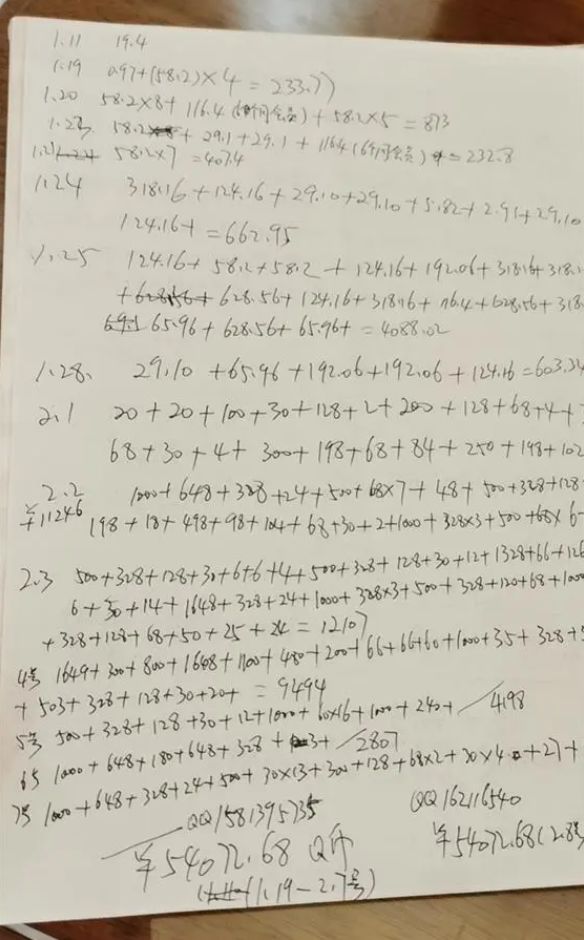 1.11 19.4
1.19 0.97+(58.2)×4=233.77
1.20 58.2×8+116.4(6个月会员)+58.2×5=873
1.23 58.2+29.1+29.1+116.4(6个月会员)=232.8
58.2×7=407.4
1.24 318.16+124.16+29.10+29.10+5.82+2.91+29.10
124.16+=662.95
1.25 124.16+58.2+58.2+124.16+192.06+318.16+318.1
+628.56+124.16+318.16+76.4+628.56+318
65.96+628.56+65.96+=4088.02
1.28. 29.10+65.96+192.06+192.06+124.16=603.34
2.1 20+20+100+30+128+2+200+128+68+4+
68+30+4+300+198+68+84+250+198+102
2.2 1000+648+328+24+500+68×7+48+500+328+128
¥11246 198+18+498+98+104+68+30+2+1000+328×3+500+68×6
2.3 500+328+128+30+6+6+4+500+328+128+30+12+1328+66+126
6+30+14+1648+328+24+1000+328×3+500+328+120+68+1000
+328+128+68+50+25+24=12107
4号 1649+300+800+1648+1100+480+200+66+66+60+1000+35+328+
+503+328+128+30+20+=9494
5号 500+328+128+30+12+1000+60×16+1000+240+ 4198
65 1000+648+180+648+328+3+ 2807
7号 1000+648+328+24+500+30×13+300+128+68×2+30×4+27+
QQ1581395735 QQ162116540
¥54072.68 Q币 ¥54072.68(2.8号
(1.19-2.7号)